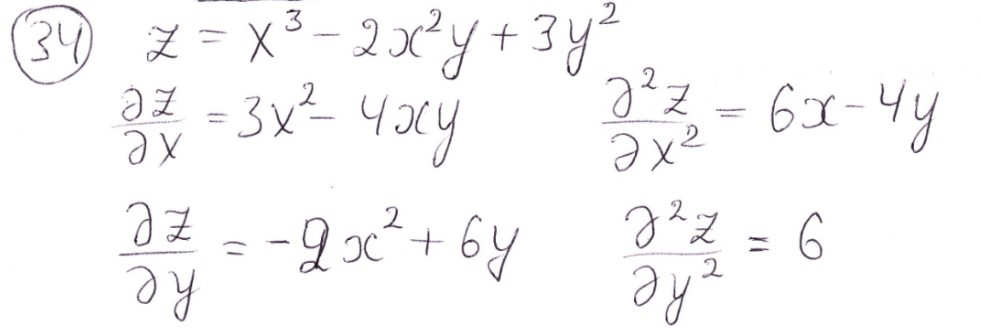 34 z = x³ - 2x²y + 3y²
∂z/∂x = 3x² - 4xy ∂²z/∂x² = 6x - 4y
∂z/∂y = -2x² + 6y ∂²z/∂y² = 6